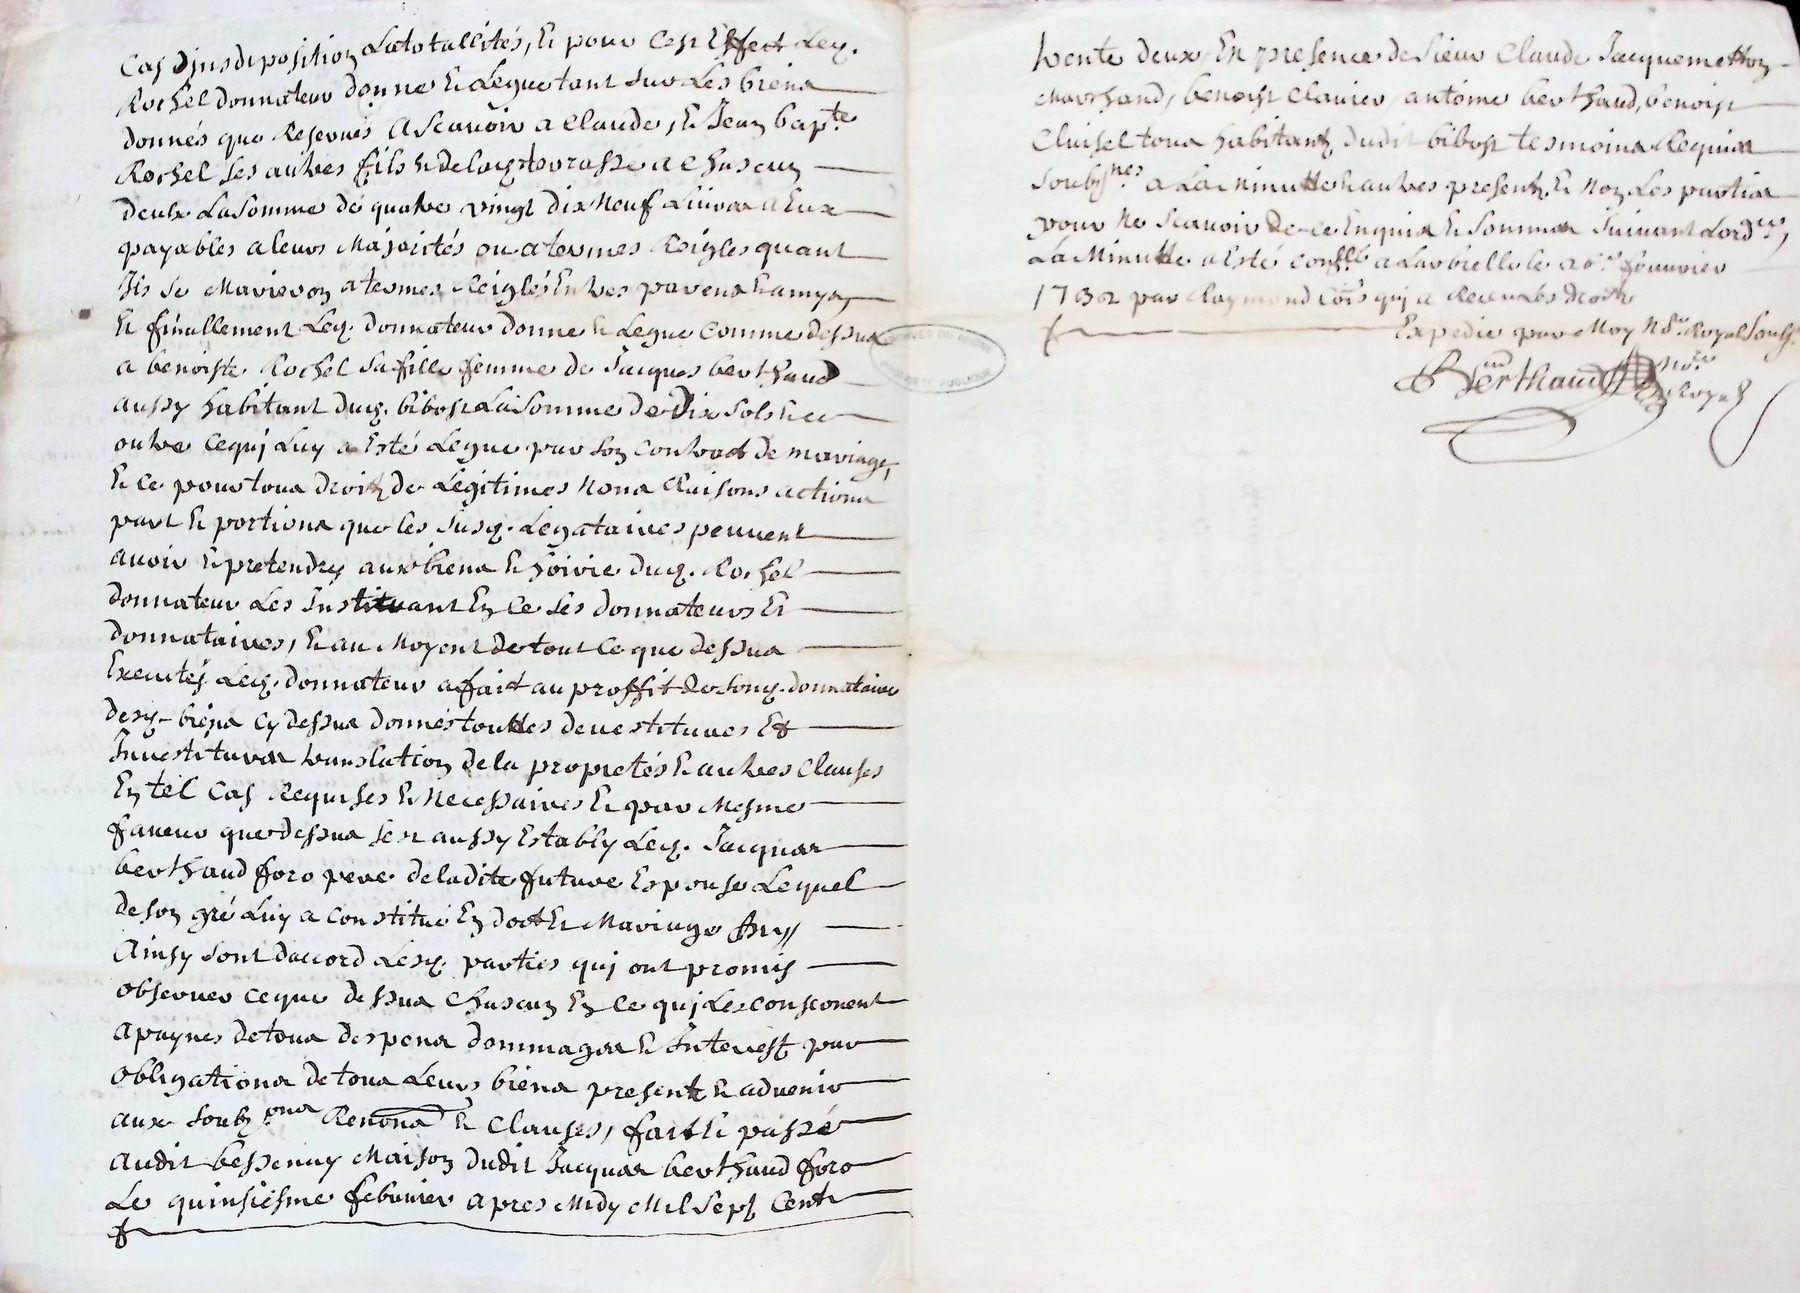 Cas d'jnsdiposition Latotallités, Et pour Cest Effect Ley.
Rochel donnateur donne Et Legue tant sur Les biens
donnés que Reservés Ascavoir a Claude, Et Jean bapte
Rochel ses autres fils Et de a Chascun
deux La somme de quatre vingt dix Neuf Livres a Eux
payables a leurs Majorités ou a termes Reigles quant
Ils se Marieron a termes Reiglés Entres parens Et amys,
Et finallement Ley. donnateur donne Et Legue Comme dessus
a benoiste Rochel sa fille femme de Jacques berthaud
aussy habitant duy. bibost La somme de Dix sols
outre Cequj Luy a Esté Legue par son Contract de mariage,
Et Ce pour tous droits de Legitimes Noms Raisons actions
part Et portions que les susy. Legataires peuvent
avoir Et pretendre aux biens Et hoirie duy. Rochel
donnateur Les Instituant En Ce ses donnateurs Et
donnataires, Et au Moyent de tout Ce que dessus
Executés Ley. donnateur a fait au proffit de sony. donnataire
desy. biens Cy dessus donnés touttes devestitures Et
Investitures translation de la propretés Et autres Clauses
En tel Cas Requises Et Necessaires Et par Mesme
faveur que dessus sest aussy Estably Ley. Jacques
berthaud foro pere de ladite future Espouse Lequel
de son gré Luy a Constitué En dott Et Mariage
Ainsy sont daccord Lesy. parties quj ont promis
observer Ceque dessus Chascun En Ce quj Les consconent
a paynes de tous despens dommages Et Interest par
obligations de tous Leurs biens present Et advenir
aux soub.ons Renons Et Clauses, fait Et passé
audit bessenay Maison dudit Jacques berthaud foro
Le quinsiesme febvrier apres Midy Mil Sept Cent
trente deux En presence de sieur Claude Jacquemetton
Marchand, benoist Clavier, antoine berthaud, benoist
Cluisel tous habitants dudit bibost tesmoins Requis
soubsnes a La Minutte Et autres present Et Non Les parties
pour Ne Scavoir de Ce Enquis Et Sommes suivant Lordce,
La Minutte a Esté Conllé a Larbrelle le febvrier
1732 par Raymond Coms quj a Receu Les droits
Expedie par Moy Nore Royal soubsne
Berthaud Nore Royal
ARCHIVES DU RHONE
PROPRIETE PUBLIQUE